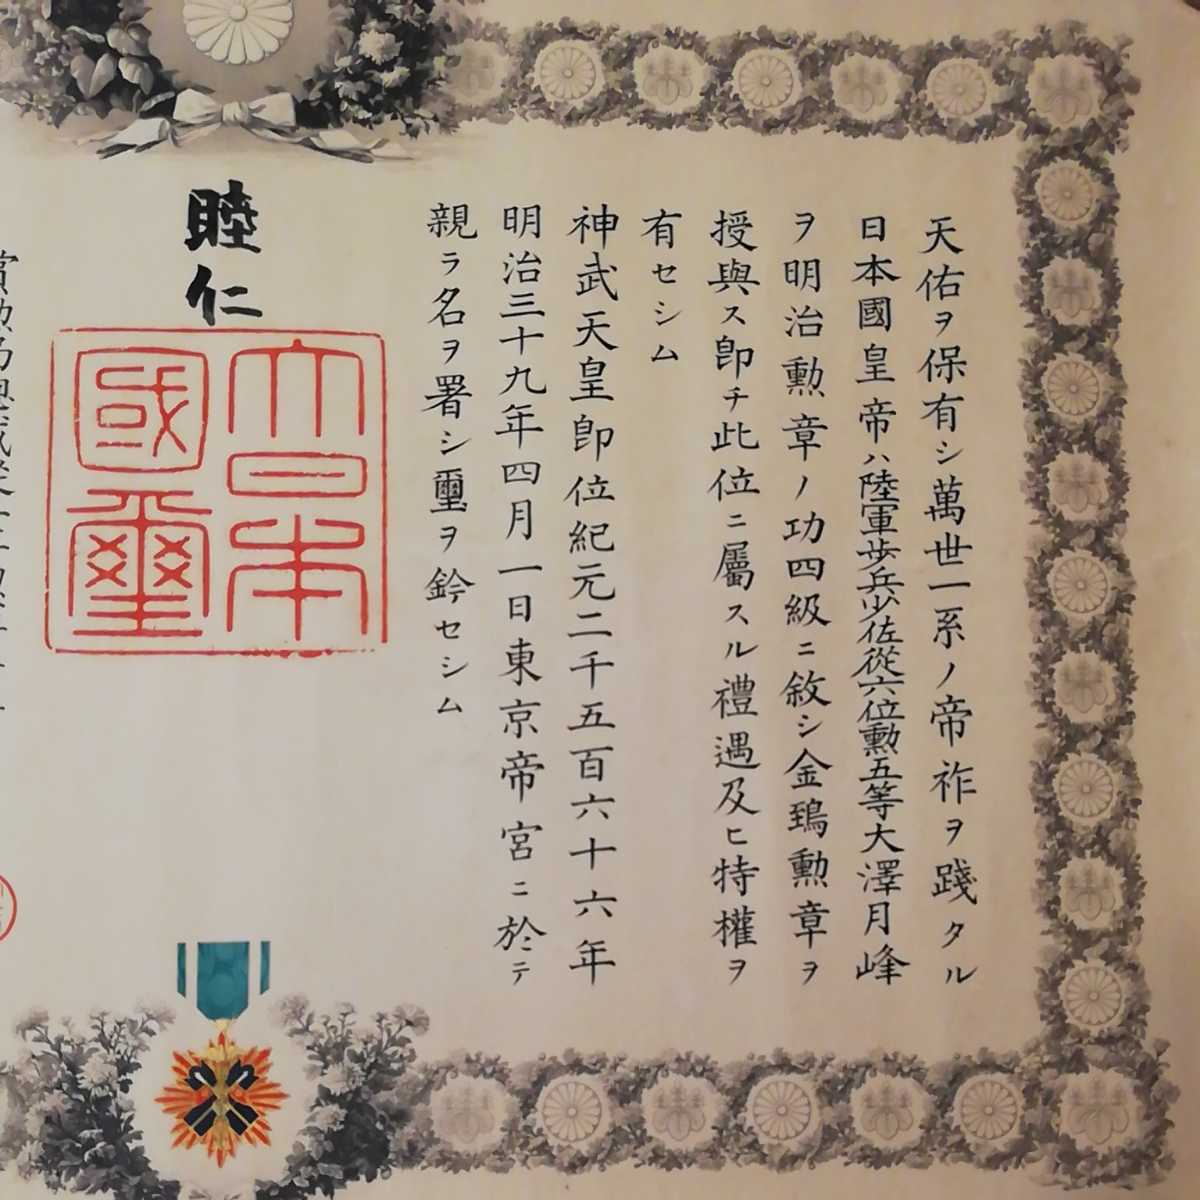 天佑ヲ保有シ萬世一系ノ帝祚ヲ踐タル
日本國皇帝ハ陸軍歩兵少佐從六位勲五等大澤月峰
ヲ明治勲章ノ功四級ニ敘シ金鵄勲章ヲ
授與ス卽チ此位ニ屬スル禮遇及ヒ特權ヲ
有セシム
神武天皇卽位紀元二千五百六十六年
明治三十九年四月一日東京帝宮ニ於テ
親ラ名ヲ署シ璽ヲ鈐セシム
睦仁
大日本
國璽